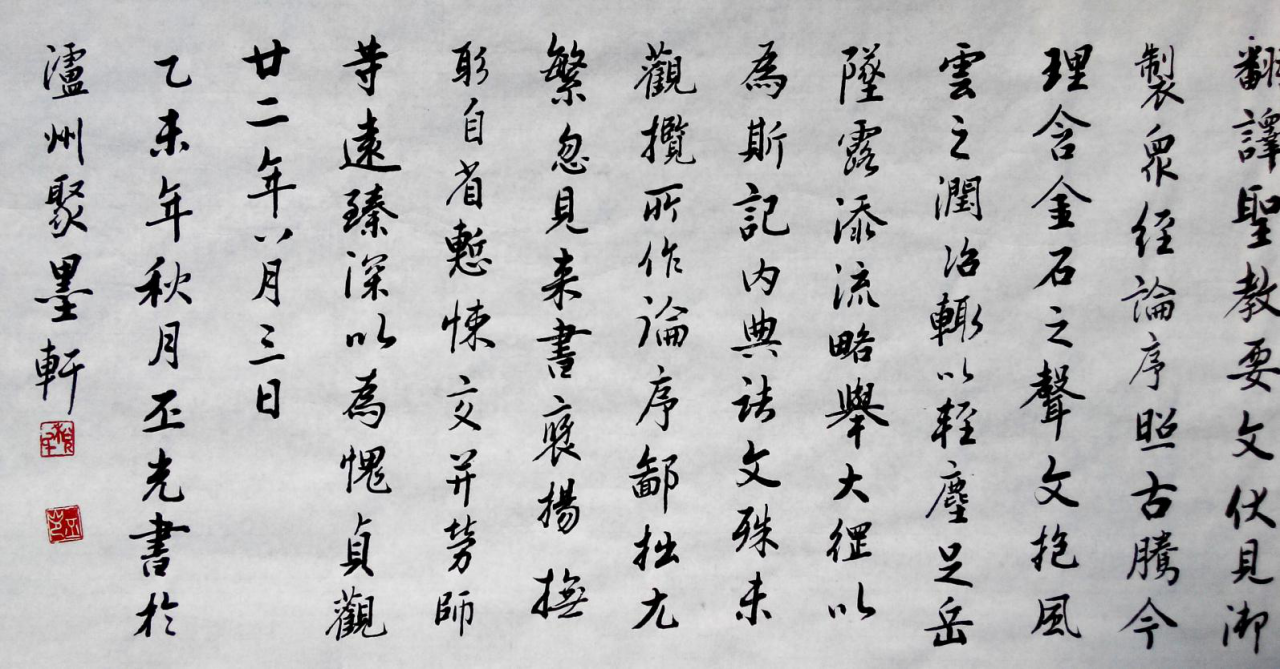 翻譯聖教要文伏見御
製眾經論序照古騰今
理含金石之聲文抱風
雲之潤治輒以輕塵足岳
墜露添流略舉大綱以
為斯記內典諸文殊未
觀攬所作論序鄙拙尤
繁忽見來書褒揚撫
躬自省慙悚交并勞師
等遠臻深以為愧貞觀
廿二年八月三日
乙未年秋月丕光書於
瀘州聚墨軒